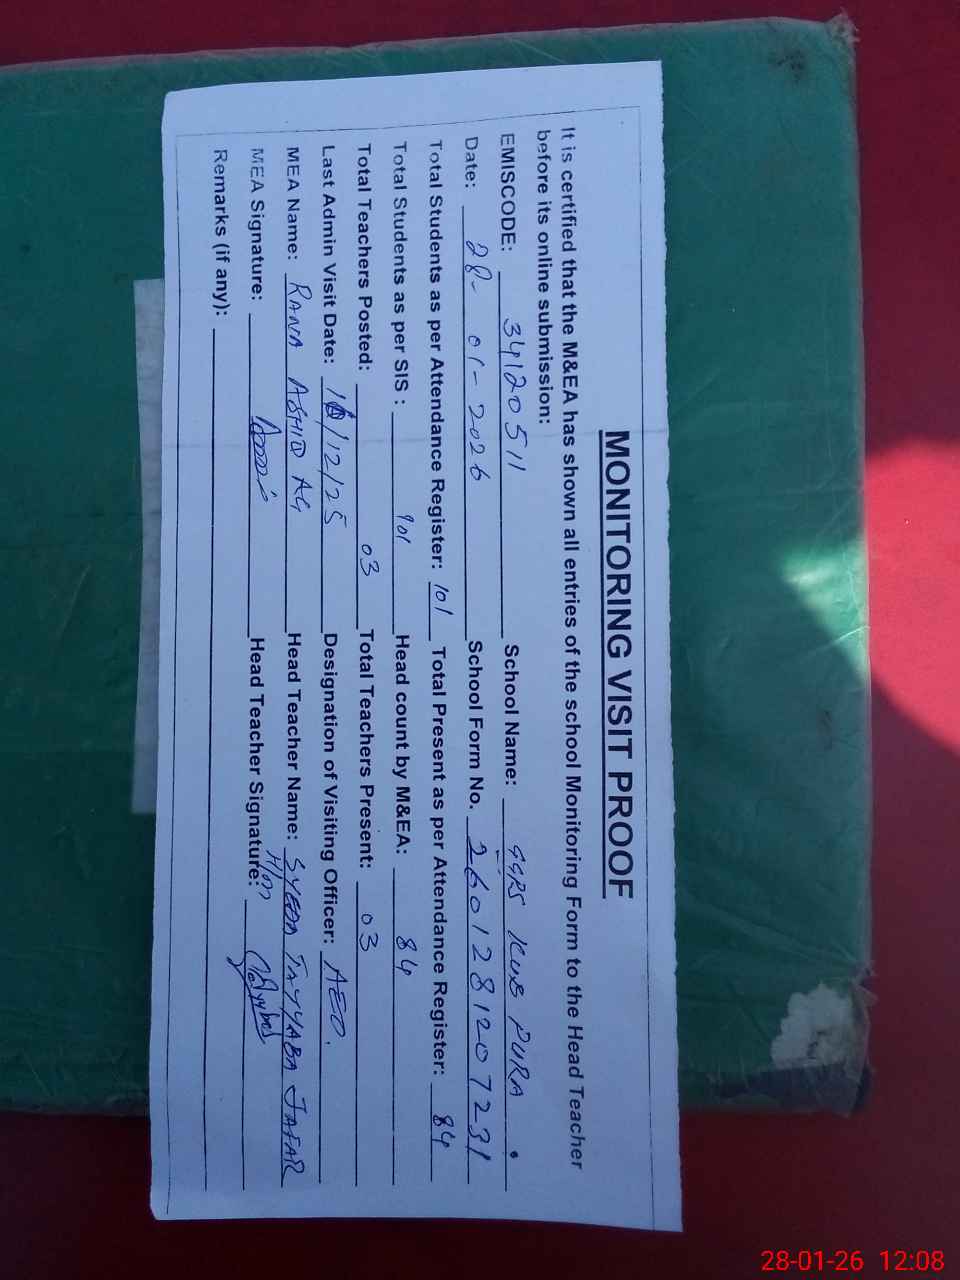 MONITORING VISIT PROOF
It is certified that the M&EA has shown all entries of the school Monitoring Form to the Head Teacher
before its online submission:
EMISCODE: 34120511 School Name: GGPS KUB PURA
Date: 28-01-2026 School Form No. 2601281207231
Total Students as per Attendance Register: 101 Total Present as per Attendance Register: 84
Total Students as per SIS : 101 Head count by M&EA: 84
Total Teachers Posted: 03 Total Teachers Present: 03
Last Admin Visit Date: /12/25 Designation of Visiting Officer: AEO.
MEA Name: RANA Head Teacher Name: SYEDA TAYYABA JAFAR
MEA Signature: Head Teacher Signature: Tayyba
Remarks (if any):
28-01-26 12:08